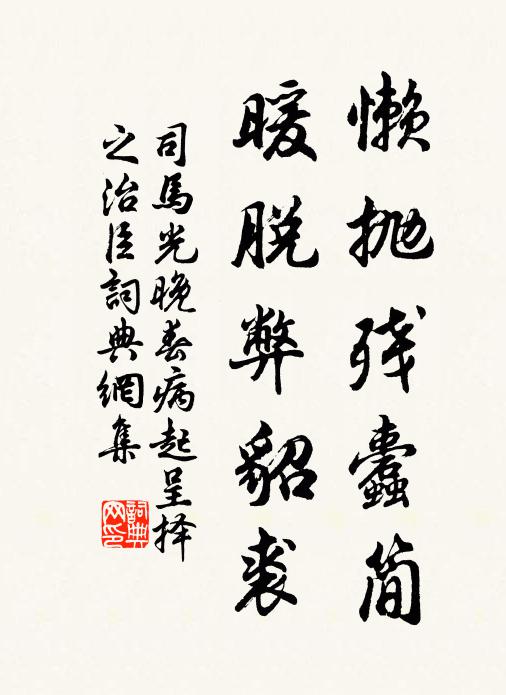 懒抛残蠹简
暖脱弊貂裘
司馬光晚春病起呈择
之治臣詞典網集
詞典网印